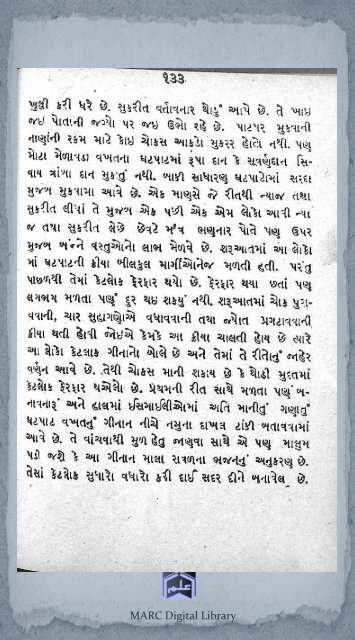 ૧૩૩
ખુલ્લી કરી ધરે છે. સુકરીત વર્તાવનાર થોડું આપે છે. તે ખાઇ
જઇ પોતાની જગ્યો પર જઇ ઉભો રહે છે. પાટપર મુકવાની
નાણાંની રકમ માટે કોઇ ચોકસ આંકડો મુકરર હોતો નથી. પણ
મોટા મેળાવડા વખતના ઘટપાટમાં રૂપા દાન કે સવર્ણદાન સિ-
વાય ત્રાંબા દાન મુકાતું નથી. બાકી સાધારણ ઘટપાટોમાં સરદા
મુજબ મુકવામા આવે છે. એક માણસે જે રીતથી ન્યાજ તથા
સુકરીત લીધાં તે મુજબ એક પછી એક એમ લોકો આવી ન્યા
જ તથા સુકરીત લેછે છેવટે મંત્ર ભણનાર પોતે પણ ઉપર
મુજબ બંન્ને વસ્તુઓનો લાભ મેળવે છે. શરૂઆતમાં આ લોકો
માં ઘટપાટની ક્રીયા બીલકુલ માર્ગીઓનેજ મળતી હતી. પરંતુ
પાછળથી તેમાં કેટલોક ફેરફાર થયો છે. ફેરફાર થયા છતાં પણ
લગભગ મળતા પણું દુર થઇ શકયું નથી. શરૂઆતમાં ચોક પુરા-
વવાની, ચાર સુહાગણોએ વધાવવાની તથા જ્યોત પ્રગટાવવાની
ક્રીયા થતી હોવી જોઈએ કેમકે આ ક્રીયા ચાલતી હોય છે ત્યારે
આ લોકો કેટલાક ગીનાનો બોલે છે અને તેમાં તે રીતોનું જાહેર
વર્ણન આવે છે. તેથી ચોકસ માની શકાય છે કે થોડી મુદતમાં
કેટલોક ફેરફાર થએલો છે. પ્રથમની રીત સાથે મળતા પણું બ-
નાવનારૂં અને હાલમાં ઇસમાઈલીઓમાં અતિ માનીતું ગણાતું
ઘટપાટ વખતનું ગીનાન નીચે નમુના દાખલ ટાંકી બતાવવામાં
આવે છે. તે વાંચવાથી મુળ હેતુ જાણવા સાથે એ પણ માલુમ
પડી જશે કે આ ગીનાન માલા રાવળના ભજનનું અનુકરણ છે.
તેમાં કેટલોક સુધારો વધારો કરી દાઈ સદર દીને બનાવેલ છે.
علم
MARC Digital Library